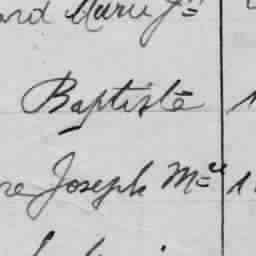 ard Marie J=
Baptiste 1
re Joseph M=el 1